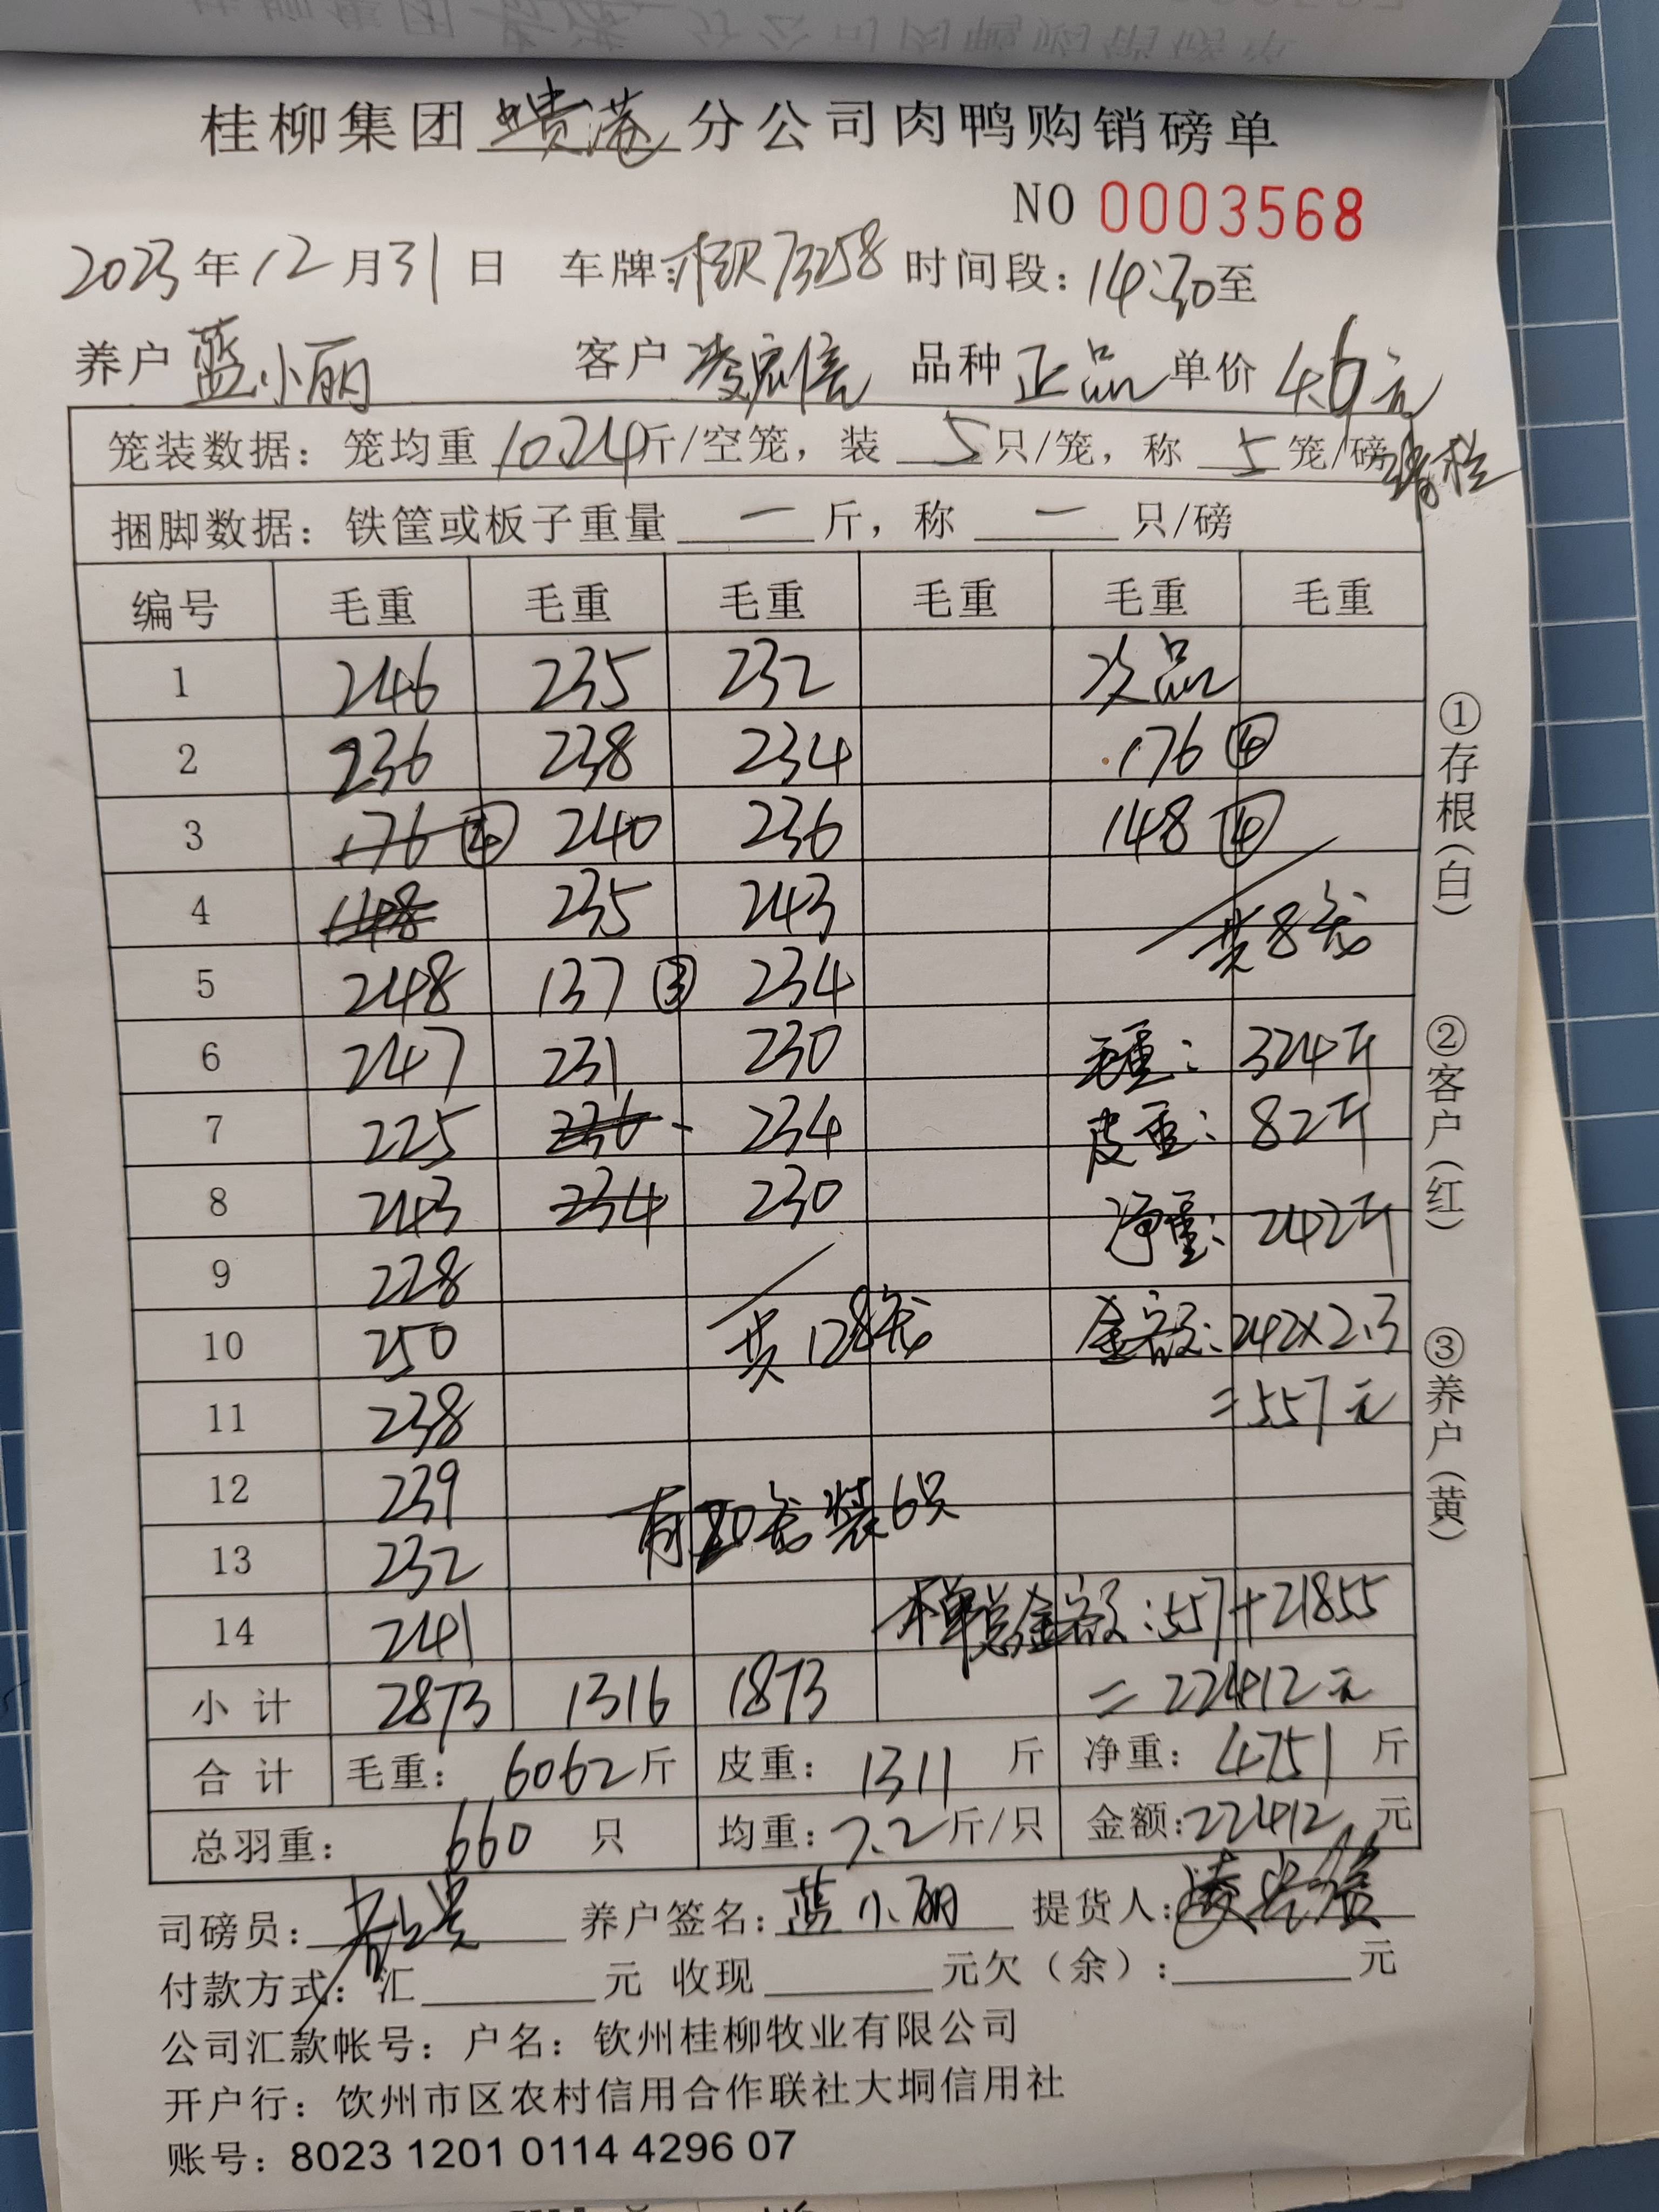 桂柳集团 贵港 分公司肉鸭购销磅单
NO 0003568
2023年12月31日 车牌: 73258 时间段: 14:30至
养户 蓝小丽 客户 凌宏信 品种 正品 单价 4.6元
笼装数据: 笼均重 10.24斤/空笼, 装 5只/笼, 称 5笼/磅
捆脚数据: 铁筐或板子重量 一 斤, 称 一 只/磅
编号 毛重 毛重 毛重 毛重 毛重 毛重
1 246 235 232 次品
2 236 238 234 176 ④
3 176 ④ 240 236 148 ④
4 148 235 243 共8笼
5 248 137 ③ 234
6 247 231 230 毛重: 324斤
7 225 236 234 皮重: 82斤
8 243 234 230 净重: 242斤
9 228
10 250 共128笼 金额: 242×2.3
11 238 =557元
12 239 有20笼装6只
13 232
14 241 本单总金额: 557+21855
小计 2873 1316 1873 = 22412元
合计 毛重: 6062斤 皮重: 1311 斤 净重: 4751 斤
总羽重: 660 只 均重: 7.2斤/只 金额: 22412 元
司磅员: 养户签名: 蓝小丽 提货人:
付款方式: 汇 元 收现 元欠(余): 元
公司汇款帐号: 户名: 钦州桂柳牧业有限公司
开户行: 饮州市区农村信用合作联社大垌信用社
账号: 8023 1201 0114 4296 07
①存根(白)
②客户(红)
③养户(黄)